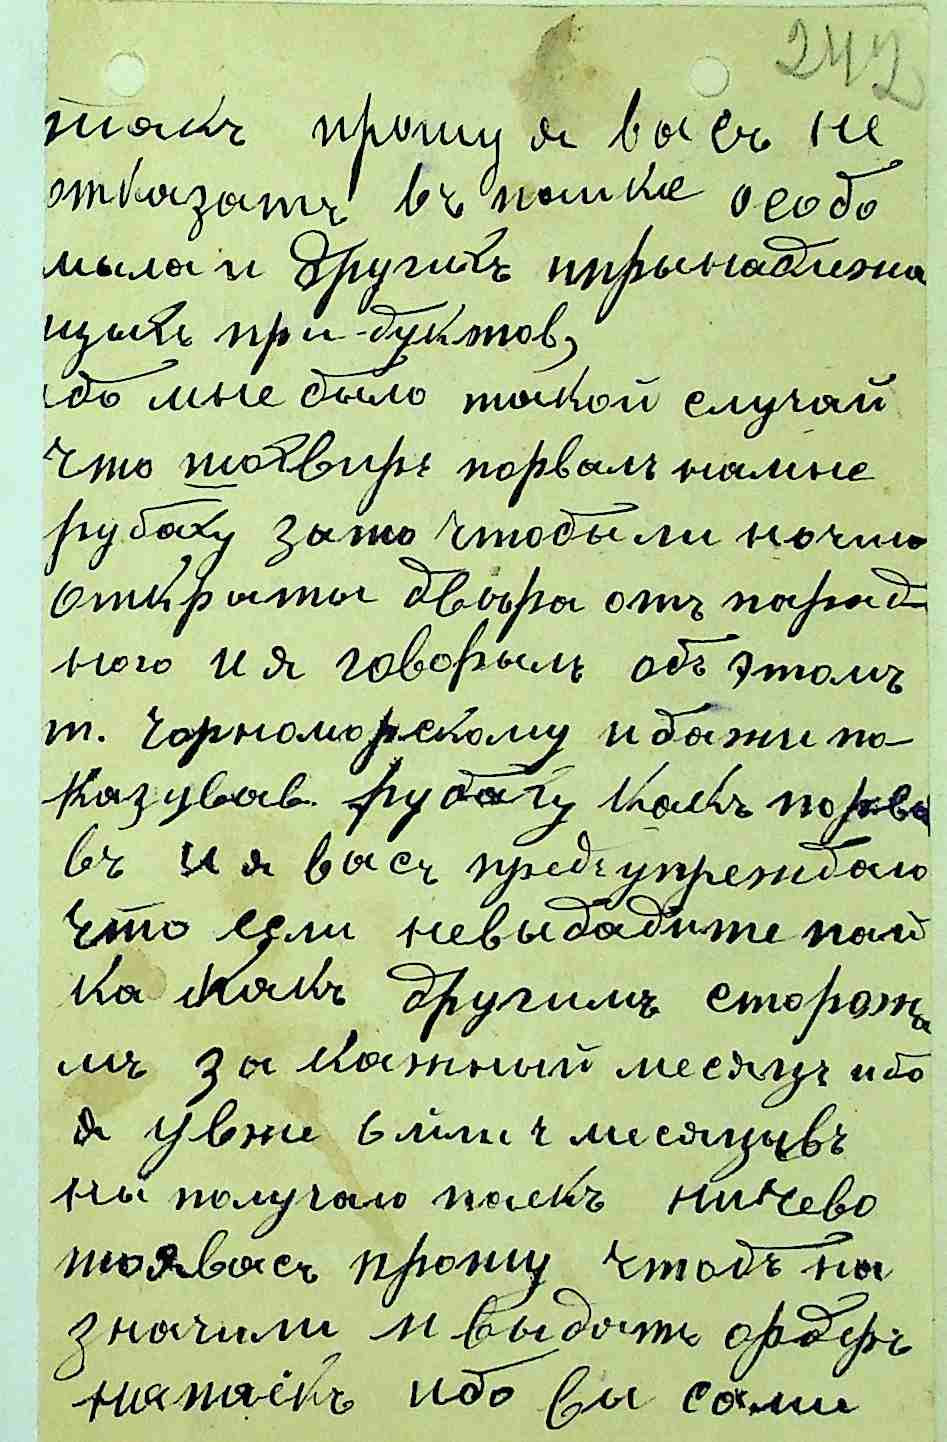 242
такъ прошу я васъ не
отказатъ въ пайке особо
мыла и другихъ прынадлежа
щыхъ при-дуктов,
ибо мне было такой случай
что порвалъ намне
рубаху зато чтобы ли ночию
откриты двыра отъ парад-
ного и я говорылъ объ этомъ
т. Чорноморскому и дажи по-
казував рубаху какъ порва
въ и я васъ предъупреждаю
что если невыдадите пай
ка какъ другимъ сторожа
мъ за кажный месяцъ ибо
я ужне 6 или ч месяцывъ
ны получаю паекъ ничево
то я васъ прошу чтобъ на
значили и выдатъ ордеръ
на паёкъ ибо вы сами